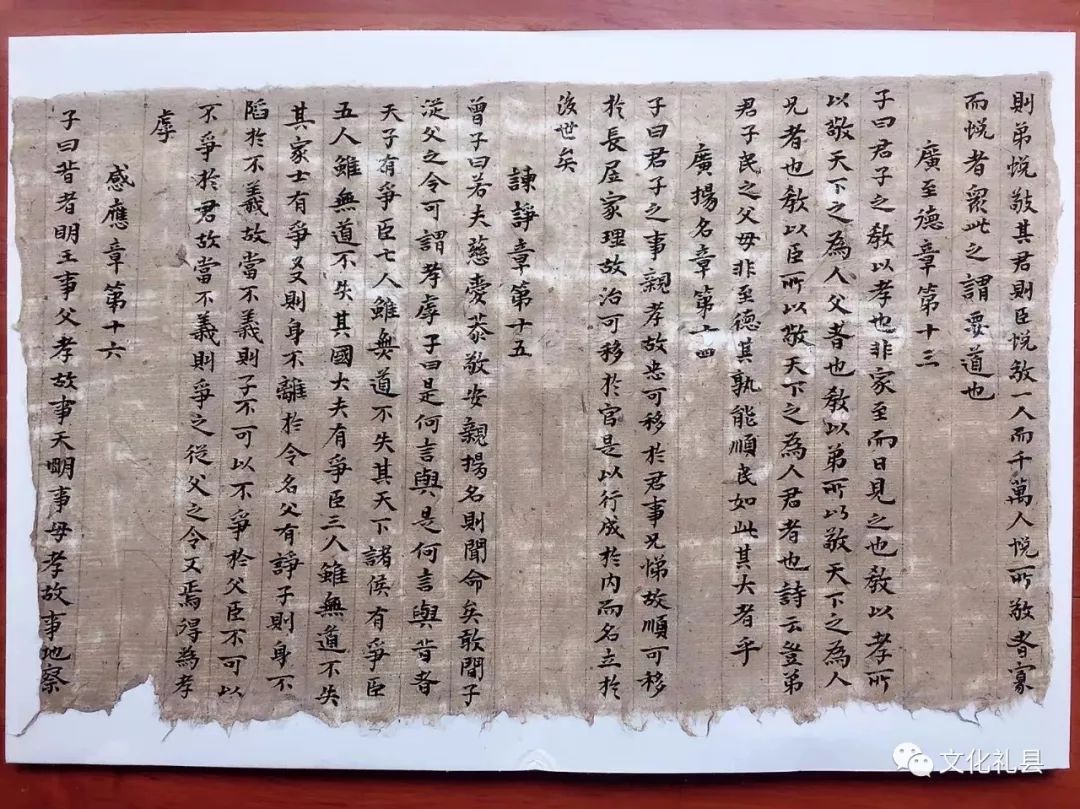 則弟悅敬其君則臣悅敬一人而千萬人悅所敬者寡
而悅者衆此之謂要道也
廣至德章第十三
子曰君子之教以孝也非家至而日見之也教以孝所
以敬天下之為人父者也教以弟所以敬天下之為人
兄者也教以臣所以敬天下之為人君者也詩云豈弟
君子民之父母非至德其孰能順民如此其大者乎
廣揚名章第十四
子曰君子之事親孝故忠可移於君事兄悌故順可移
於長居家理故治可移於官是以行成於內而名立於
後世矣
諫諍章第十五
曾子曰若夫慈愛恭敬安親揚名則聞命矣敢問子
從父之令可謂孝虖子曰是何言與是何言與昔者
天子有爭臣七人雖無道不失其天下諸侯有爭臣
五人雖無道不失其國大夫有爭臣三人雖無道不失
其家士有爭友則身不離於令名父有諍子則身不
陷於不義故當不義則子不可以不爭於父臣不可以
不爭於君故當不義則爭之從父之令又焉得為孝
虖
感應章第十六
子曰昔者明王事父孝故事天明事母孝故事地察
文化礼县